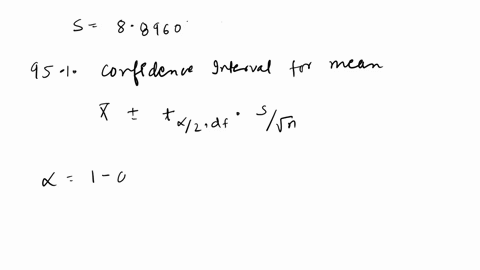 S = 8.8960
95 %. Confidence Interval for mean
x̄ ± t α/2, df · s/√n
α = 1 - 0